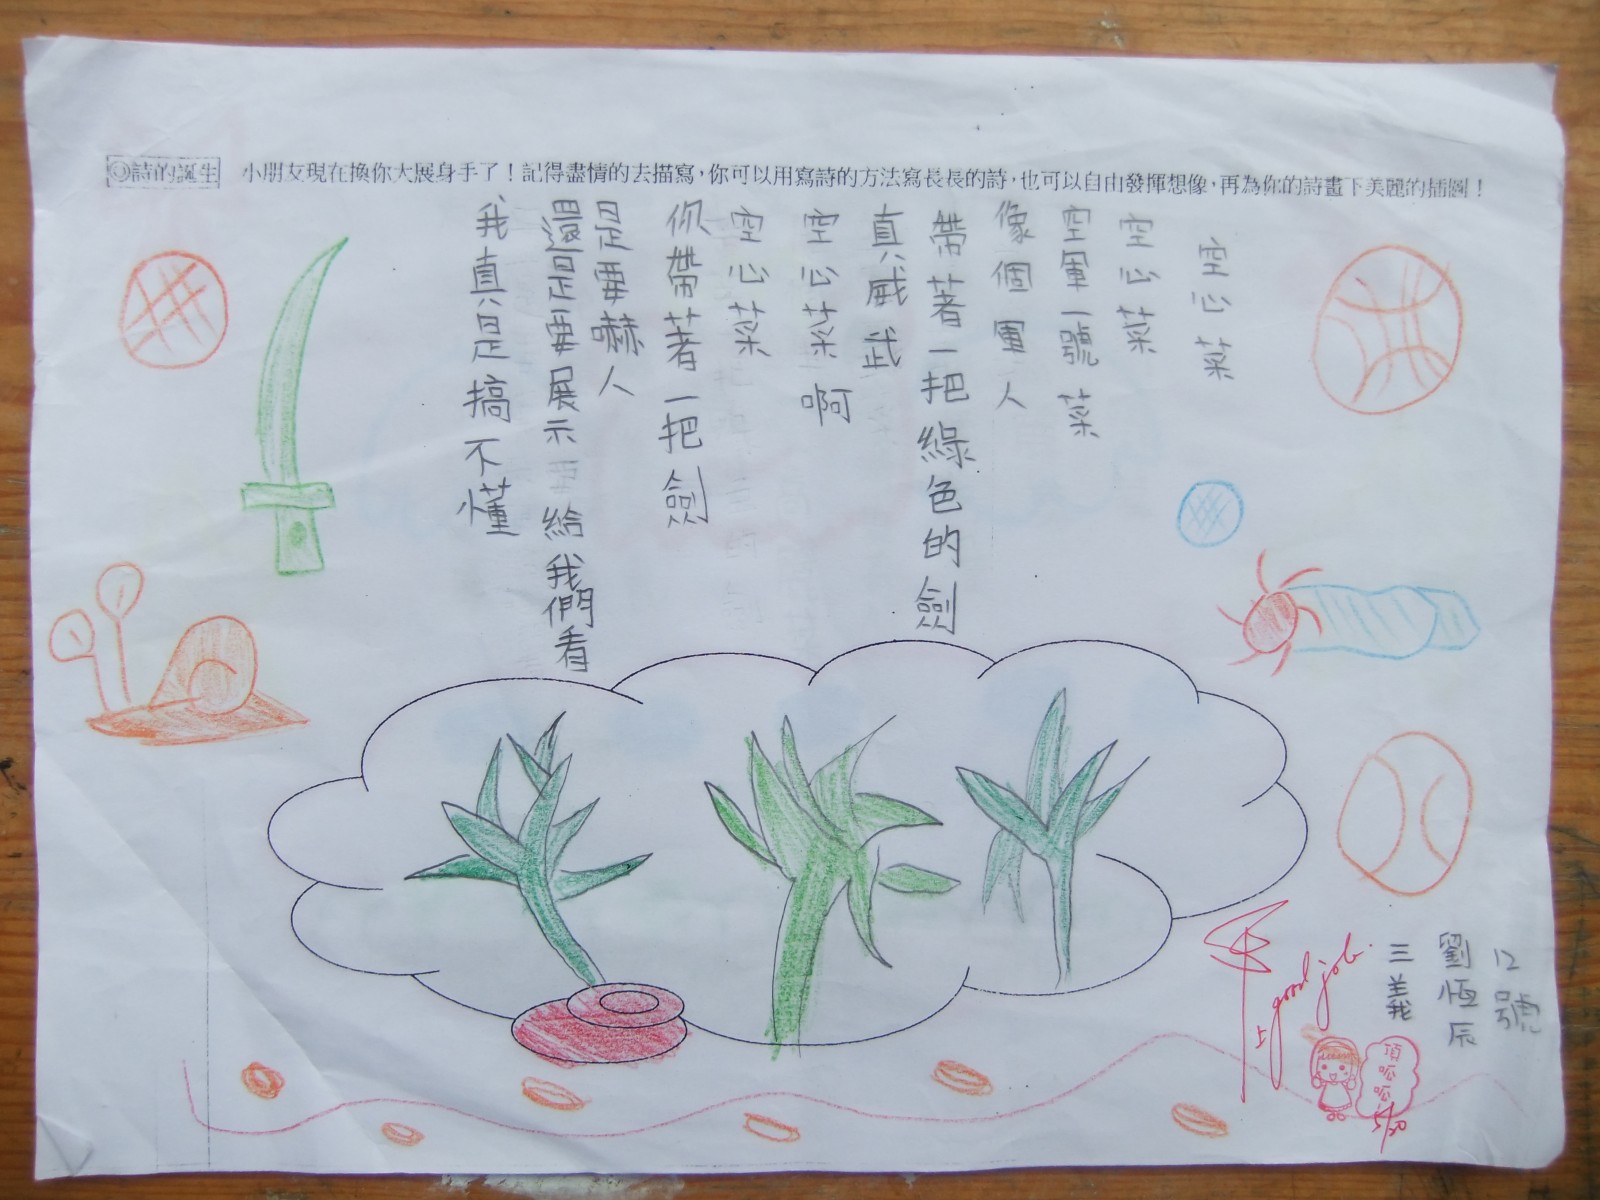 ◎詩的誕生 小朋友現在換你大展身手了！記得盡情的去描寫，你可以用寫詩的方法寫長長的詩，也可以自由發揮想像，再為你的詩畫下美麗的插圖！
空心菜
空心菜
空軍一號菜
像個軍人
帶著一把綠色的劍
真威武
空心菜啊
空心菜
你帶著一把劍
是要嚇人
還是要展示給我們看
我真是搞不懂
12號
劉恆辰
三義
good job.
上
頂呱呱
5/20